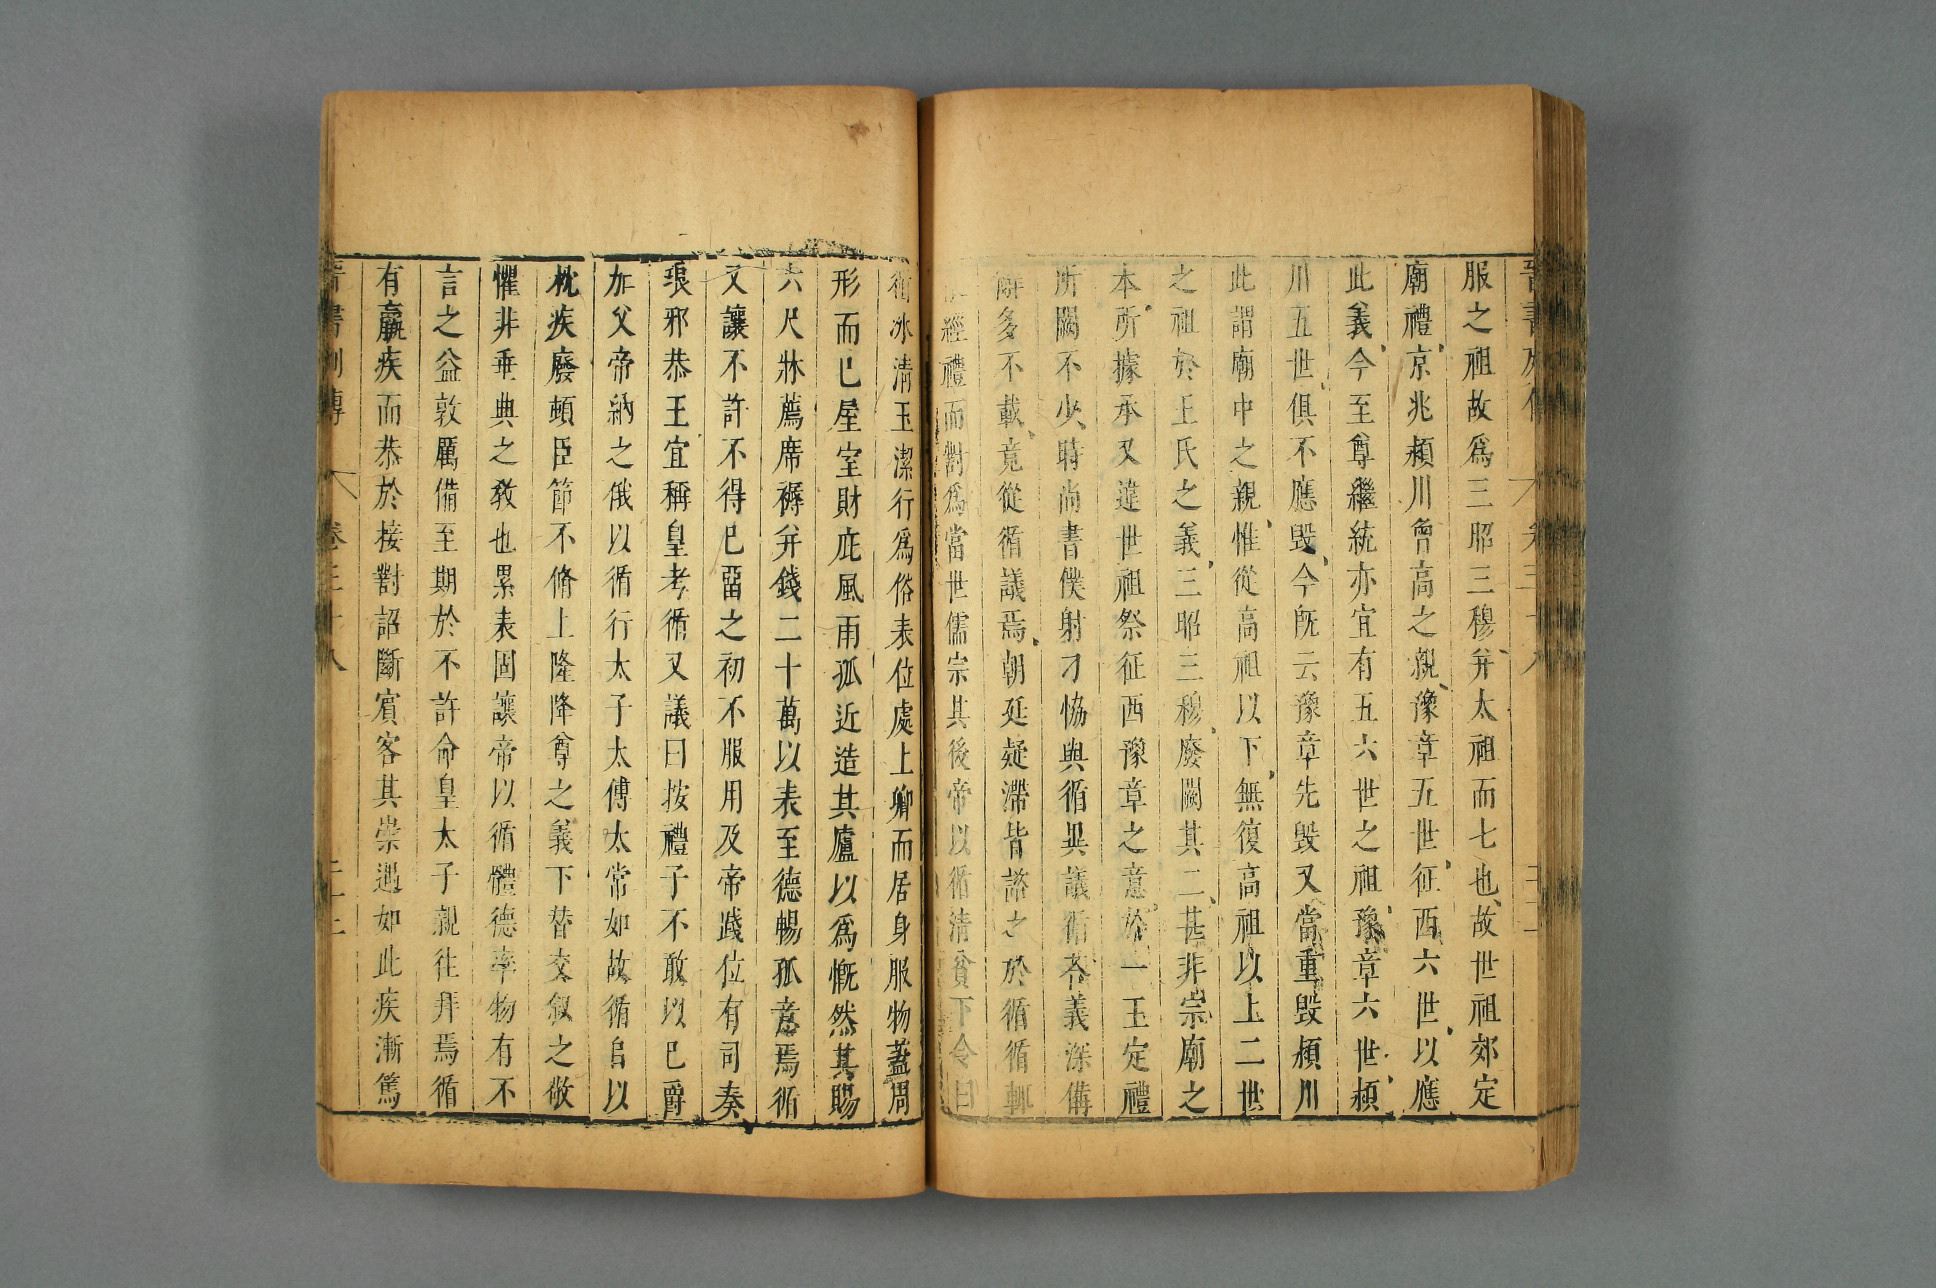 服之祖故爲三昭三穆并太祖而七也故世祖郊定
廟禮京兆潁川曾高之親豫章五世征西六世以應
此義今至尊繼統亦宜有五六世之祖豫章六世潁
川五世俱不應毁今既云豫章先毁又當重毁潁川
此謂廟中之親惟從高祖以下無復高祖以上二世
之祖於王氏之義三昭三穆廢闕其二甚非宗廟之
本所據承又違世祖祭征西豫章之意於一王定禮
所闕不少時尚書僕射刁恊與循異議循荅義深備
辭多不載竟從循議焉朝廷疑滯皆諮之於循循輒
經禮而對爲當世儒宗其後帝以循清貧下令曰
循冰清玉潔行爲俗表位處上卿而居身服物蓋周
形而已屋室財庇風雨孤近造其廬以爲慨然其賜
六尺牀薦席褥并錢二十萬以表至德暢孤意焉循
又讓不許不得已留之初不服用及帝踐位有司奏
琅邪恭王宜稱皇考循又議曰按禮子不敢以已爵
加父帝納之俄以循行太子太傅太常如故循自以
枕疾廢頓臣節不脩上隆降尊之義下替交叙之敬
懼非垂典之教也累表固讓帝以循體德率物有不
言之益敦厲備至期於不許命皇太子親往拜焉循
有羸疾而恭於接對詔斷賓客其崇遇如此疾漸篤
晉書列傳
卷三十八